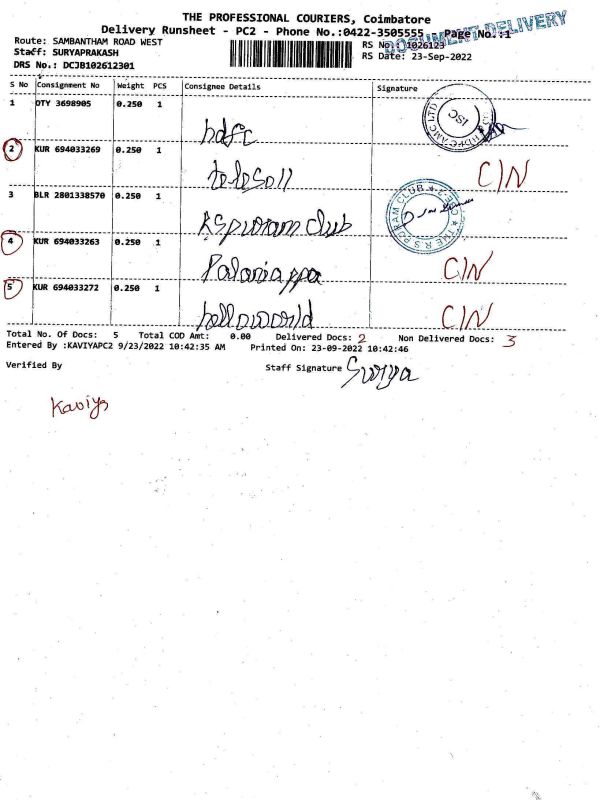 THE PROFESSIONAL COURIERS, Coimbatore
Delivery Runsheet - PC2 - Phone No.:0422-3505555 Page No.:1
DOCUMENT DELIVERY
Route: SAMBANTHAM ROAD WEST RS No: 1026123
Staff: SURYAPRAKASH RS Date: 23-Sep-2022
DRS No.: DCJB102612301
S No Consignment No Weight PCS Consignee Details Signature
1 OTY 3698905 0.250 1 hdfc
ISC
2 KUR 694033269 0.250 1 telesoll CIN
3 BLR 2801338570 0.250 1 RSpuram club
THE R.S. PURAM CLUB
4 KUR 694033263 0.250 1 Palaniappa CIN
5 KUR 694033272 0.250 1 helloworld CIN
Total No. Of Docs: 5 Total COD Amt: 0.00 Delivered Docs: 2 Non Delivered Docs: 3
Entered By :KAVIYAPC2 9/23/2022 10:42:35 AM Printed On: 23-09-2022 10:42:46
Verified By Staff Signature Surya
Kaviya